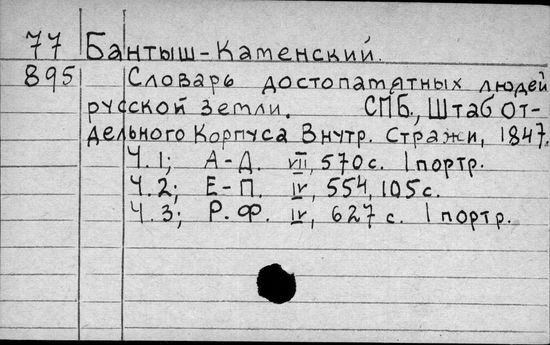 77 Бантыш-Каменский.
895 Словарь достопамятных людей
русской земли. СПБ., Штаб От-
дельного Корпуса Внутр. Стражи, 1847.
Ч.1; А-Д. VII, 570 с. 1 портр.
Ч.2; Е-П. IV, 554, 105 с.
Ч.3; Р.Ф. IV, 627 с. 1 портр.